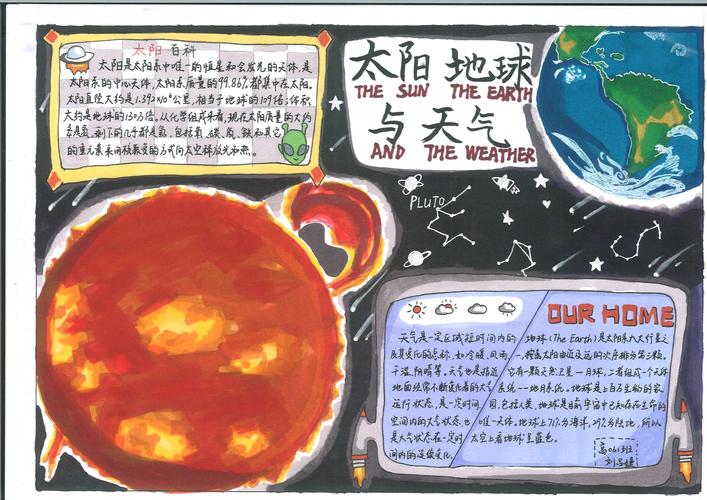 太阳 百科
太阳是太阳系中唯一的恒星和会发光的天体,是
太阳系的中心天体,太阳系质量的99.86%都集中在太阳。
太阳直径大约是1.392×10⁶公里,相当于地球的109倍;体积
大约是地球的130万倍。从化学组成来看,现在太阳质量的大约
是氢,剩下的几乎都是氦,包括氧、碳、氖、铁和其它
的重元素采用核聚变的方式向太空释放光和热。
太阳 地球
THE SUN THE EARTH
与 天气
AND THE WEATHER
PLUTO
天气是一定区域短时间内的
及其变化的总称,如冷暖、风雨、
干湿、阴晴等。天气也是指近
地面经常不断变化着的大气
运行状态,是一定时间
空间内的大气状态,也
是大气状态在一定时
间内的连续变化。
OUR HOME
地球(The Earth)是太阳系八大行星之
一,按离太阳由近及远的次序排为第三颗。
它有一颗天然卫星—月球,二者组成一个天体
系统—地月系统。地球是上百万生物的家
园,包括人类,地球是目前宇宙中已知存在生命的
唯一天体。地球上71%为海洋,29%为陆地,所以
太空上看地球呈蓝色。
高061班